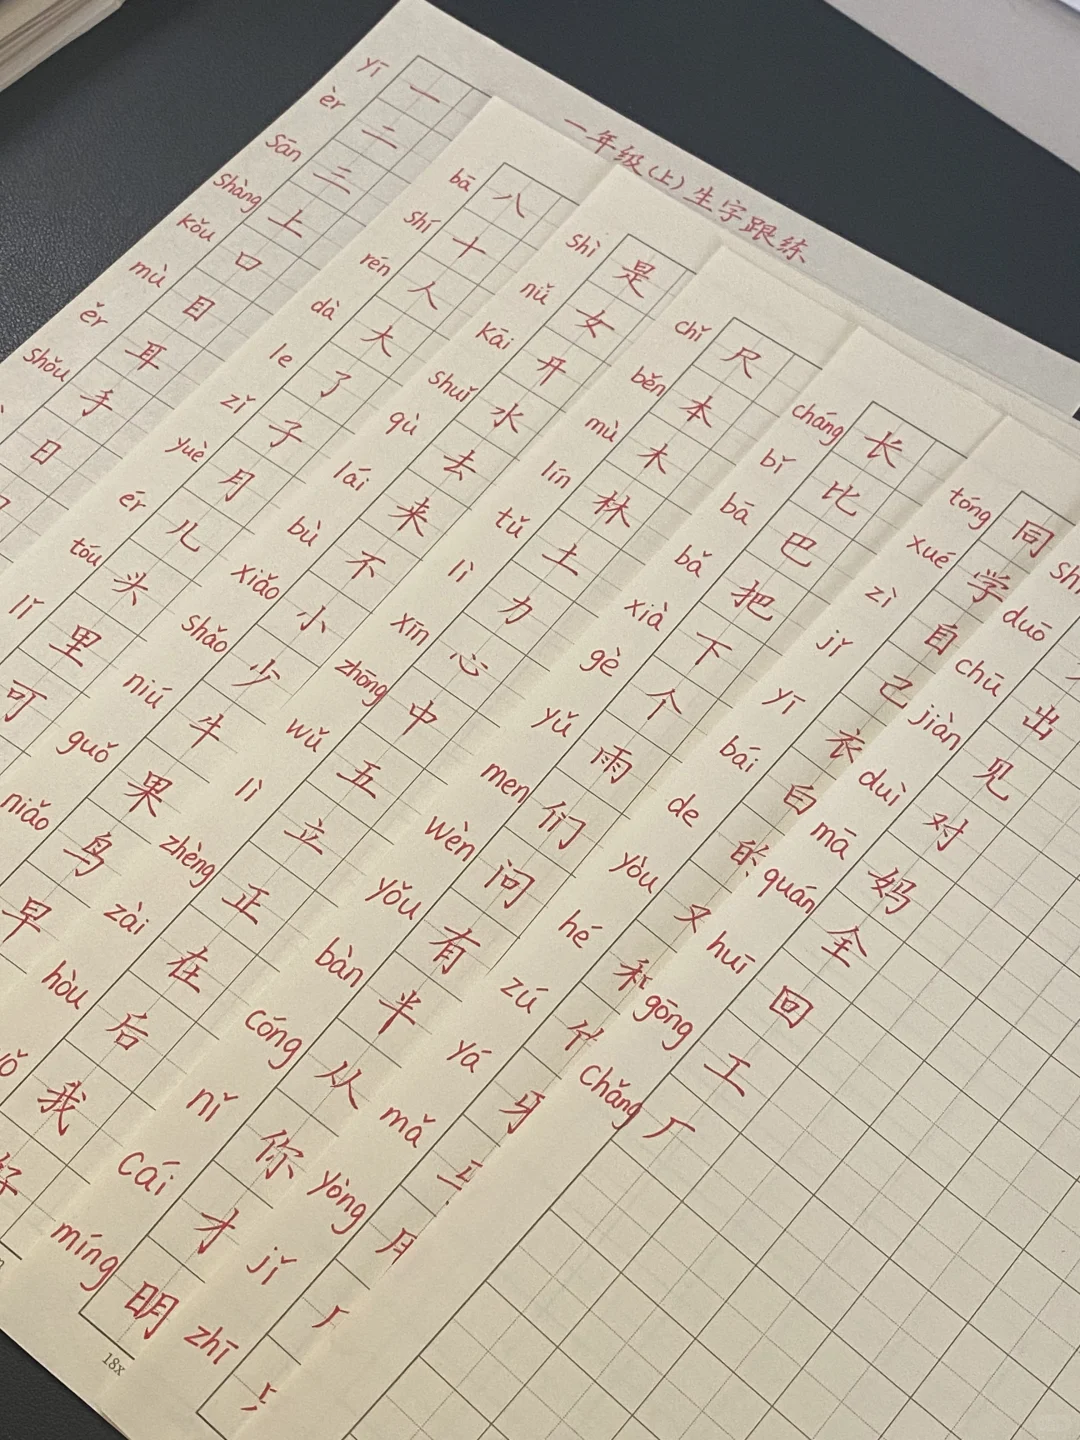 一年级(上)生字跟练
yī 一
èr 二
sān 三
shàng 上
kǒu 口
mù 目
ěr 耳
shǒu 手
日
bā 八
shí 十
rén 人
dà 大
le 了
zǐ 子
yuè 月
ér 儿
tóu 头
lǐ 里
可
shì 是
nǚ 女
kāi 开
shuǐ 水
qù 去
lái 来
bù 不
xiǎo 小
shǎo 少
niú 牛
guǒ 果
niǎo 鸟
早
chǐ 尺
běn 本
mù 木
lín 林
tǔ 土
lì 力
xīn 心
zhōng 中
wǔ 五
lì 立
zhèng 正
zài 在
hòu 后
我
好
cháng 长
bǐ 比
bā 巴
bǎ 把
xià 下
gè 个
yǔ 雨
men 们
wèn 问
yǒu 有
bàn 半
cóng 从
nǐ 你
cái 才
míng 明
18x
tóng 同
xué 学
zì 自
jǐ 己
yī 衣
bái 白
de 的
yòu 又
hé 和
zú
yá 牙
mǎ 马
yòng 用
jǐ
zhī
duō
chū 出
jiàn 见
duì 对
mā 妈
quán 全
huī 回
gōng 工
chǎng 厂